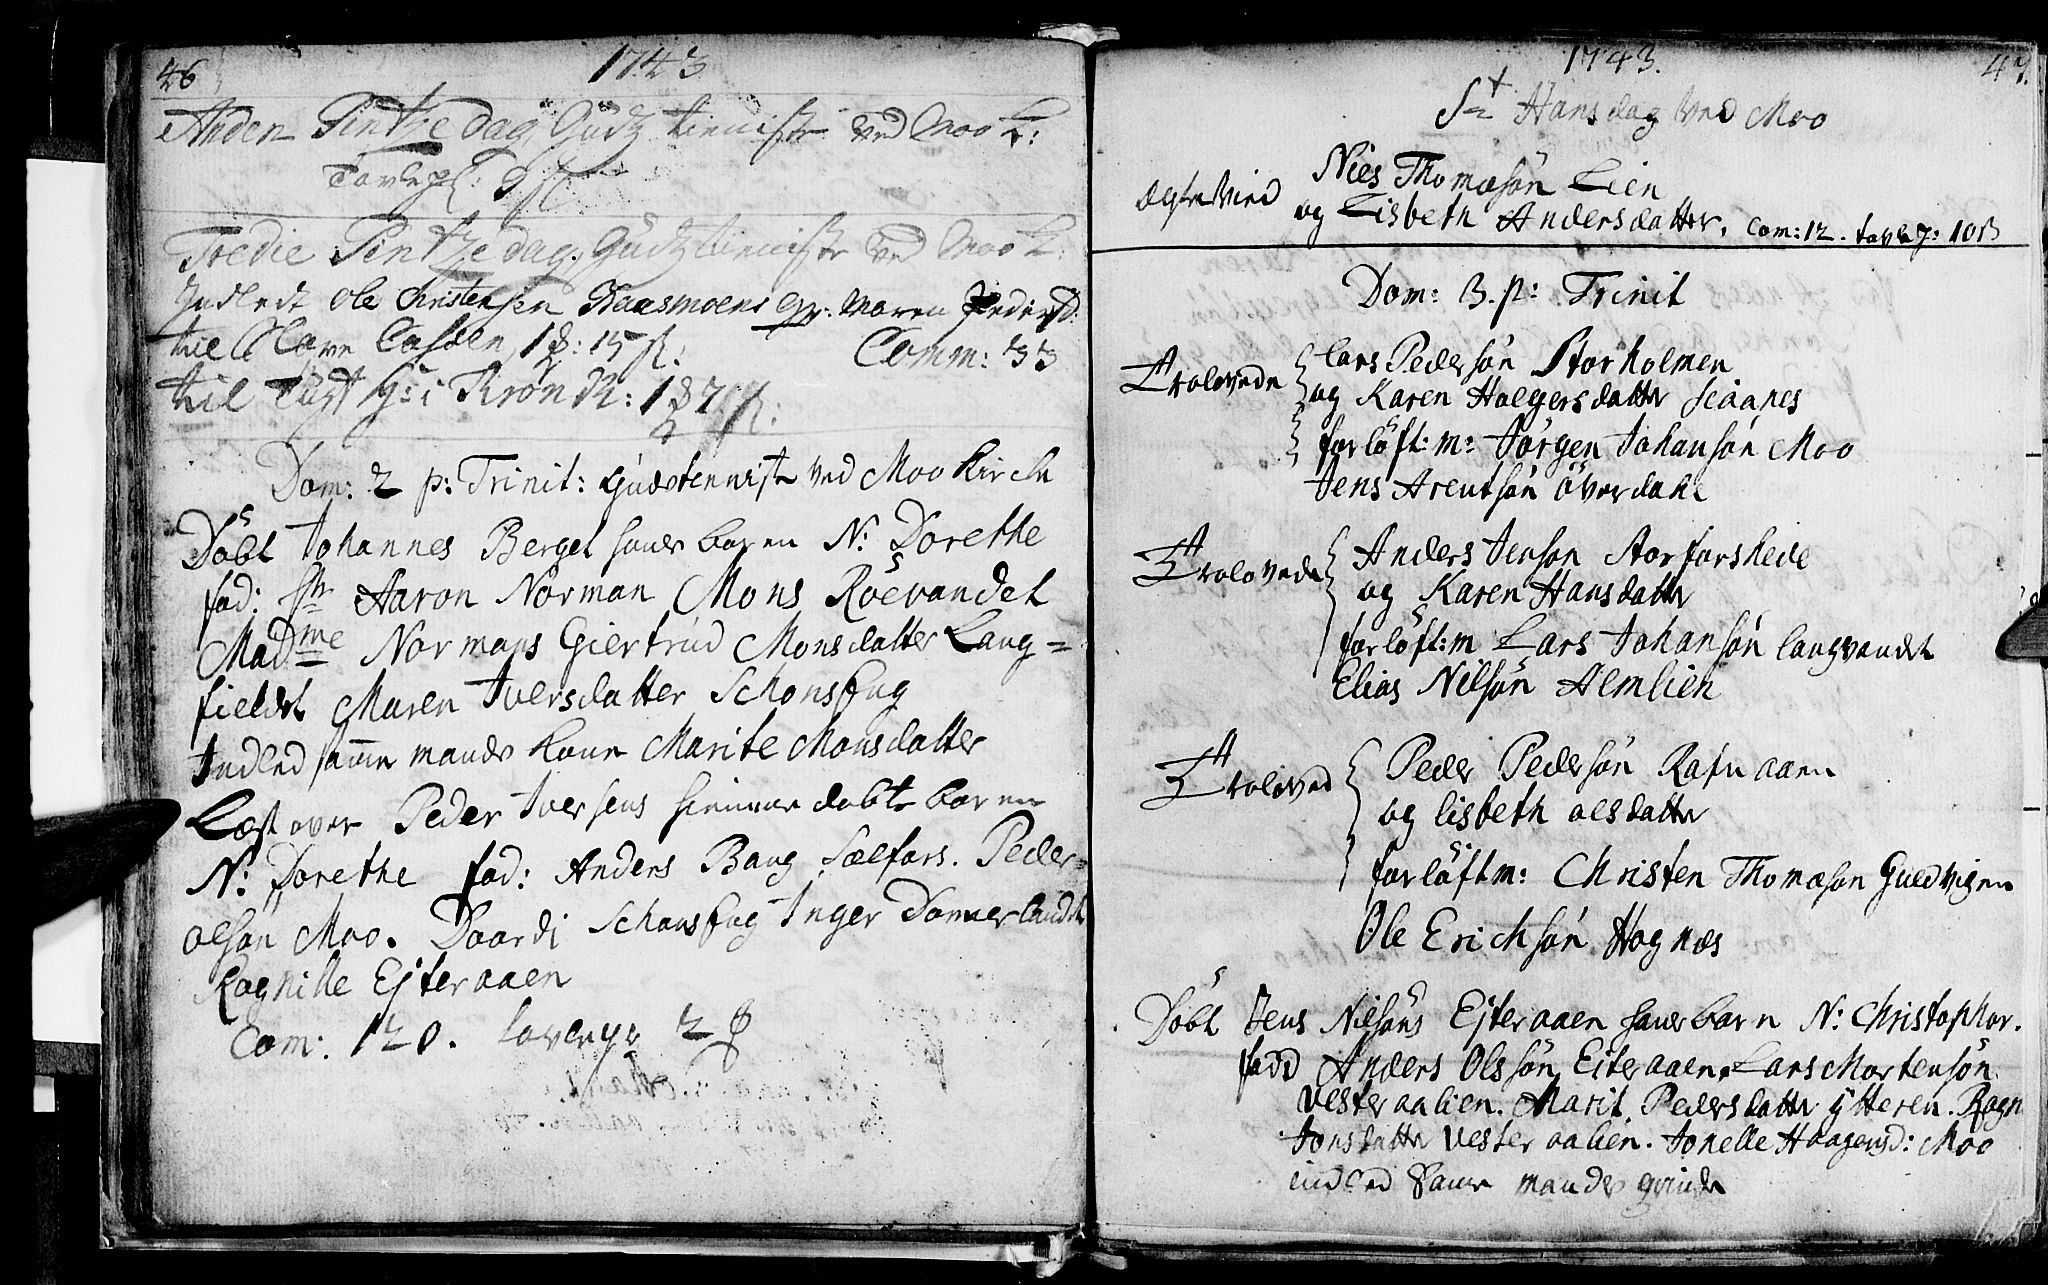 46
1743
Anden Pintzedag, Gudztienist ved Moo K:
Tavlep:
Tredie Pintzedag, Gudztienist ved Moo K:
Indledt Ole Christensen Haasmoens Maren Pedersd.
til Lave Casden 15
Comm: 33
til i Trondh: 1
Dom: 2 p: Trinit: Gudstennist ved Moo Kirche
Döbt Johannes Berget hands barn N: Dorethe
fad: Sr Aaron Norman Mons Röevandet
Madme Normans Giertrud Monsdatter Lang-
fieldet Maren Iversdatter Schonseng
Indled samme mands kone Marite Monsdatter
Læst over Peder Iversens hiemme döbte barn
N: Dorethe fad: Anders Bang Sælfors. Peder
olsön Moo. Daardi Schonseng Inger
Ragnille Ejteraaen
Com: 120. tavlep: 2
1743.
47.
St Hansdag ved Moo
ægtevied
Niels Thomæsön Lien
og Lisbeth Andersdatter. Com: 12. tavlep: 10 ß
Dom: 3. p: Trinit
Trolovede
Lars Pedersön Storholmen
og Karen Holgersdatter
forlöft: m: Jörgen Johansön Moo
Jens Arentsön överdahl
Trolovede
Anders Jensön Storforshede
og Karen Hansdatter
forlöft: m Lars Johansön Langvandet
Elias Nilsön Almlien
Troloved
Peder Pedersön Rafnaaen
og lisbeth olsdatter
forlöft m: Christen Thomæsön Guldvigen
Ole Erichsön Hognæs
Döbt Jens Nilsöns Ejteraaen hands barn N: Christophor.
fadd Anders Olssön Eiteraaen. Lars Mortensön
Vesteraalien. Marit Pedersdatter ÿtteren. Ragn
Jonsdatter Vesteraalien. Jonelle Haagensd: Moo
indled Samme mands qvinde